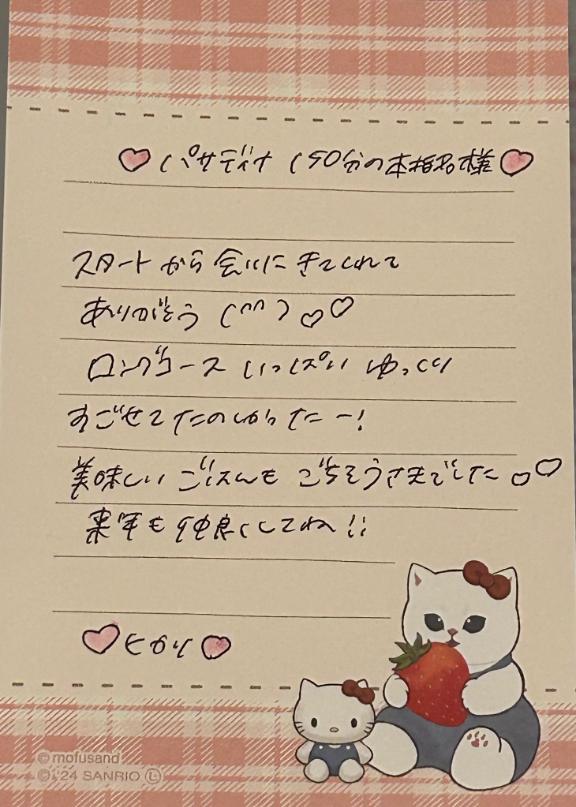 ♡パサディナ 150分の本指名様♡
スタートから会いにきてくれて
ありがとう (^^) ♡♡
ロングコースいっぱい ゆっくり
すごせてたのしかったー!
美味しい ごはんも ごちそうさまでした♡♡
来年も仲良くしてね!!
♡ヒカリ♡
© mofusand
© '24 SANRIO Ⓛ